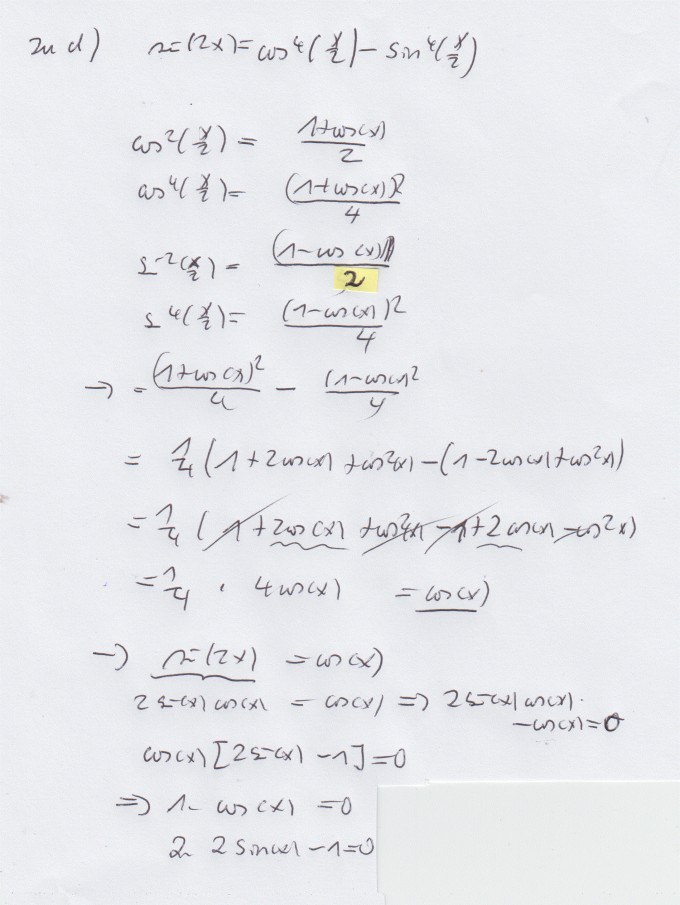 zu d) sin(2x) = cos⁴(x/2) - sin⁴(x/2)
cos²(x/2) = (1+cos(x))/2
cos⁴(x/2) = (1+cos(x))²/4
sin²(x/2) = (1-cos(x))/2
sin⁴(x/2) = (1-cos(x))²/4
→ = (1+cos(x))²/4 - (1-cos(x))²/4
= 1/4 (1+2cos(x)+cos²(x) - (1-2cos(x)+cos²x)
= 1/4 (1+2cos(x)+cos²(x) - 1+2cos(x) - cos²x)
= 1/4 · 4cos(x) = cos(x)
→ sin(2x) = cos(x)
2sin(x)cos(x) = cos(x) ⇒ 2sin(x)cos(x)
-cos(x)=0
cos(x)[2sin(x)-1]=0
⇒ 1. cos(x) = 0
2. 2sin(x)-1=0